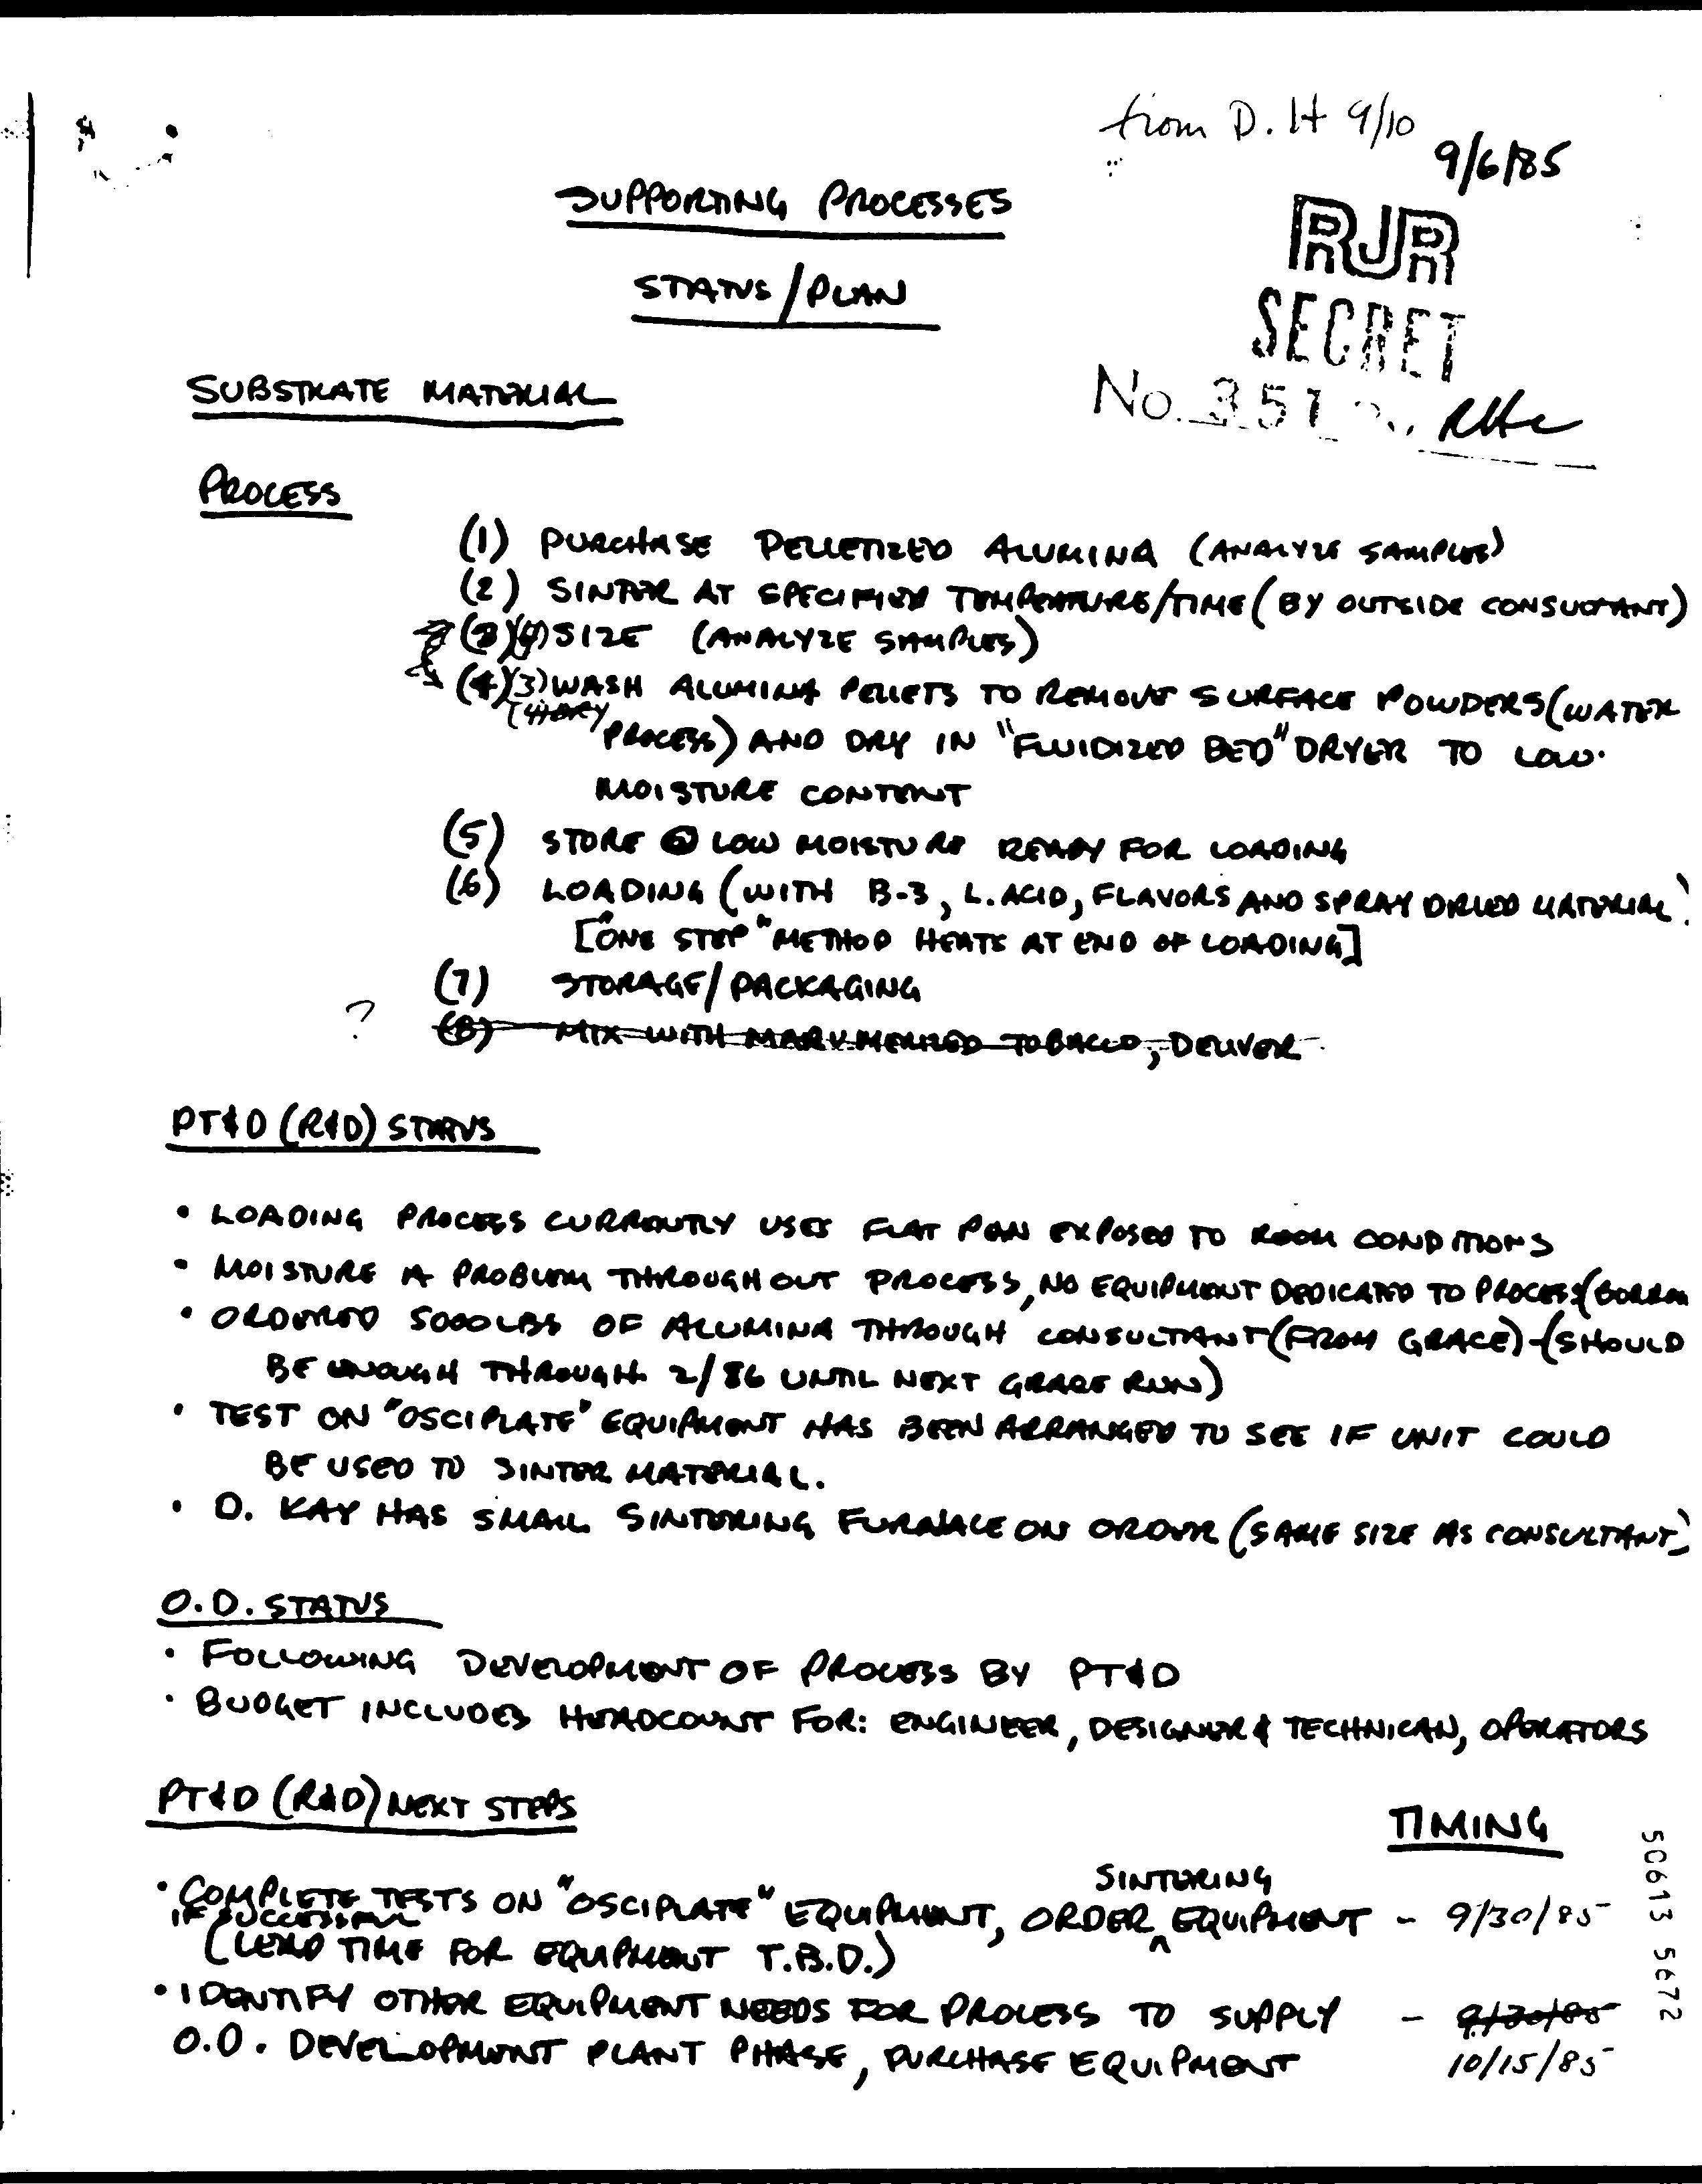 from D. H 9/10
9/6/85
SUPPORTING PROCESSES
RJR
STATUS/PLAN
SECRET
No. 351
SUBSTRATE MATERIAL
PROCESS
(1) PURCHASE PELLETIZED ALUMINA (ANALYZE SAMPLES)
(2) SINTER AT SPECIFIED TEMPERATURE/TIME (BY OUTSIDE CONSULTANT)
(3)(4) SIZE (ANALYZE SAMPLES)
(4)(3) WASH ALUMINA PELLETS TO REMOVE SURFACE POWDERS (WATER
(4) DRY
PROCESS) AND DRY IN "FLUIDIZED BED" DRYER TO LOW
MOISTURE CONTENT
(5) STORE @ LOW MOISTURE READY FOR LOADING
(6) LOADING (WITH B-3, L. ACID, FLAVORS AND SPRAY DRIED MATERIAL)
["ONE STEP" METHOD HEATS AT END OF LOADING]
(7) STORAGE/PACKAGING
? (8) MIX WITH MARUMERIZED TOBACCO, DELIVER
PT&D (R&D) STATUS
• LOADING PROCESS CURRENTLY USES FLAT PAN EXPOSED TO ROOM CONDITIONS
• MOISTURE A PROBLEM THROUGHOUT PROCESS, NO EQUIPMENT DEDICATED TO PROCESS (BORROW
• ORDERED 5000LBS OF ALUMINA THROUGH CONSULTANT (FROM GRACE) - (SHOULD
BE ENOUGH THROUGH 2/86 UNTIL NEXT GRACE RUN)
• TEST ON "OSCIPLATE" EQUIPMENT HAS BEEN ARRANGED TO SEE IF UNIT COULD
BE USED TO SINTER MATERIAL.
• D. KAY HAS SMALL SINTERING FURNACE ON ORDER (SAME SIZE AS CONSULTANT)
O.D. STATUS
• FOLLOWING DEVELOPMENT OF PROCESS BY PT&D
• BUDGET INCLUDES HEADCOUNT FOR: ENGINEER, DESIGNER & TECHNICAN, OPERATORS
PT&D (R&D) NEXT STEPS
TIMING
SINTERING
• COMPLETE TESTS ON "OSCIPLATE" EQUIPMENT, ORDER ^ EQUIPMENT - 9/30/85
IF SUCCESSFUL
(LEAD TIME FOR EQUIPMENT T.B.D.)
• IDENTIFY OTHER EQUIPMENT NEEDS FOR PROCESS TO SUPPLY - 9/30/85
O.D. DEVELOPMENT PLANT PHASE, PURCHASE EQUIPMENT 10/15/85
50613 5672